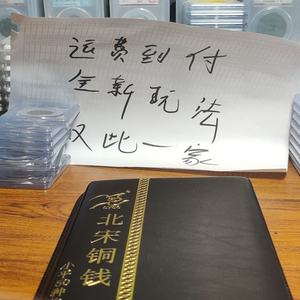 运费到付
全新玩法
仅此一家
北宋铜钱